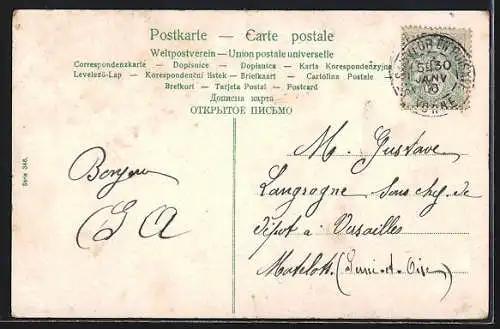 Postkarte — Carte postale
Weltpostverein — Union postale universelle
Correspondenzkarte — Dopisnice — Dopisnica — Karta Korespondenzyjna
Levelező-Lap — Korespondenční listek — Briefkaart — Cartolina Postale
Brefkort — Tarjeta Postal — Postcard
Дописна карта
ОТКРЫТОЕ ПИСЬМО
30
JANV
Serie 346.
Bonjour
G A
M. Gustave
Langrogne sous chef de
dépot a Versailles
Matelots (Seine-et-Oise)